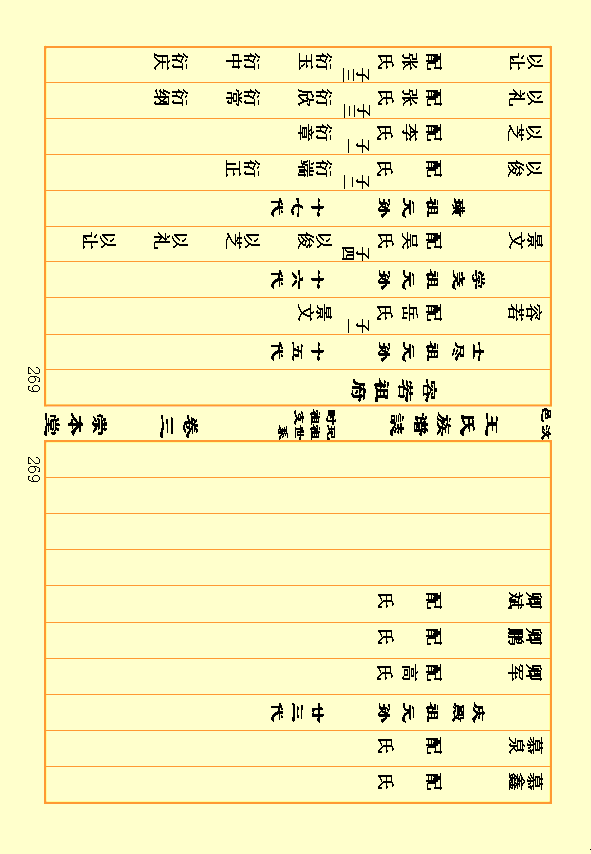 慕鑫 配 氏
慕泉 配 氏
庆殿祖元孙 廿三代
卿军 配高氏
卿鹏 配 氏
卿斌 配 氏
269
汝邑 王氏族谱誌 卷三 崇本堂
容若祖府
269
士尽祖元孙 十五代
容若 配岳氏 子一 景文
祖元孙 十六代
景文 配吴氏 子四 以俊 以芝 以礼 以让
祖元孙 十七代
以俊 配 氏 子二 衍端 衍正
以芝 配李氏 子一 衍章
以礼 配张氏 子三 衍欣 衍常 衍纲
以让 配张氏 子三 衍玉 衍中 衍庆